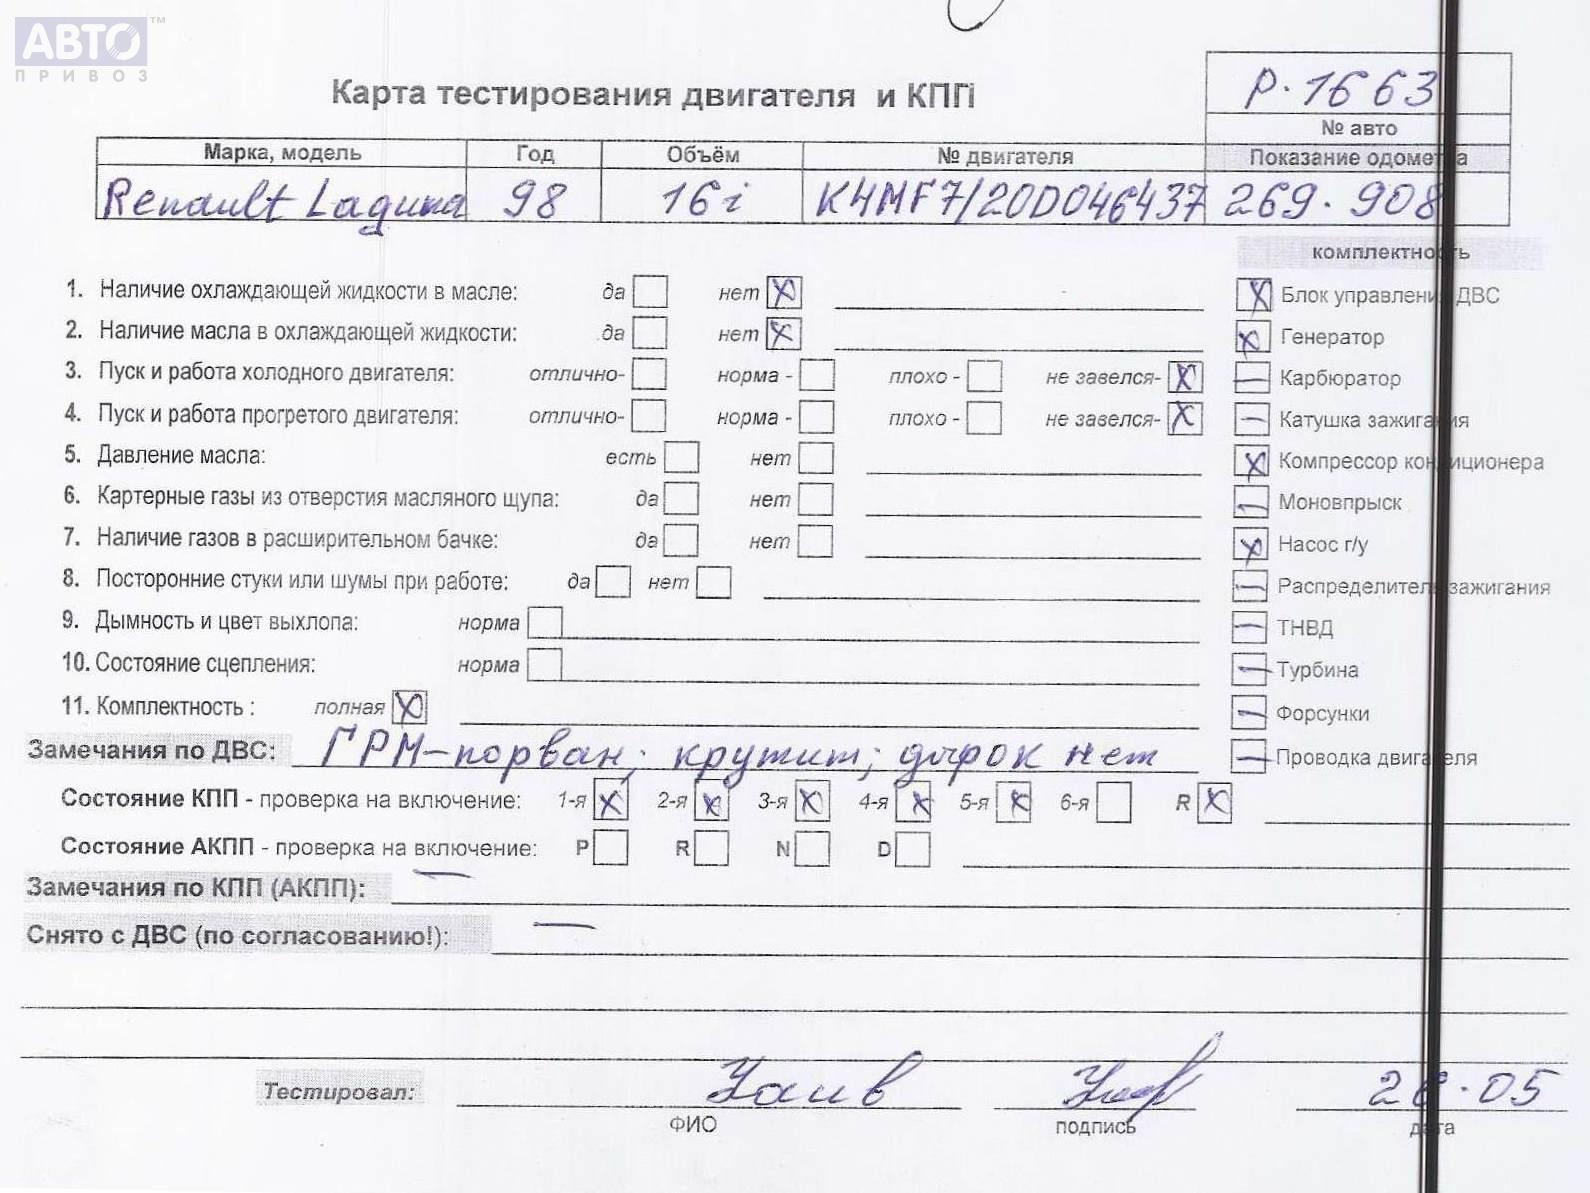 АВТО ™
ПРИВОЗ
Карта тестирования двигателя и КПП
Р-1663
№ авто
Марка, модель Год Объём № двигателя Показание одометра
Renault Laguna 98 16i K4MF7/20D046437 269.908
комплектность
1. Наличие охлаждающей жидкости в масле: да нет X
Блок управления ДВС X
2. Наличие масла в охлаждающей жидкости: да нет X
Генератор X
3. Пуск и работа холодного двигателя: отлично- норма - плохо - не завелся- X
— Карбюратор
4. Пуск и работа прогретого двигателя: отлично- норма - плохо - не завелся- X
— Катушка зажигания
5. Давление масла: есть нет
X Компрессор кондиционера
6. Картерные газы из отверстия масляного щупа: да нет
— Моновпрыск
7. Наличие газов в расширительном бачке: да нет
X Насос г/у
8. Посторонние стуки или шумы при работе: да нет
— Распределитель зажигания
9. Дымность и цвет выхлопа: норма
— ТНВД
10. Состояние сцепления: норма
— Турбина
11. Комплектность : полная X
— Форсунки
Замечания по ДВС: ГРМ-порван; крутит; дырок нет
— Проводка двигателя
Состояние КПП - проверка на включение: 1-я X 2-я X 3-я X 4-я X 5-я X 6-я R X
Состояние АКПП - проверка на включение: P R N D
Замечания по КПП (АКПП): —
Снято с ДВС (по согласованию!): —
Тестировал:
ФИО подпись дата